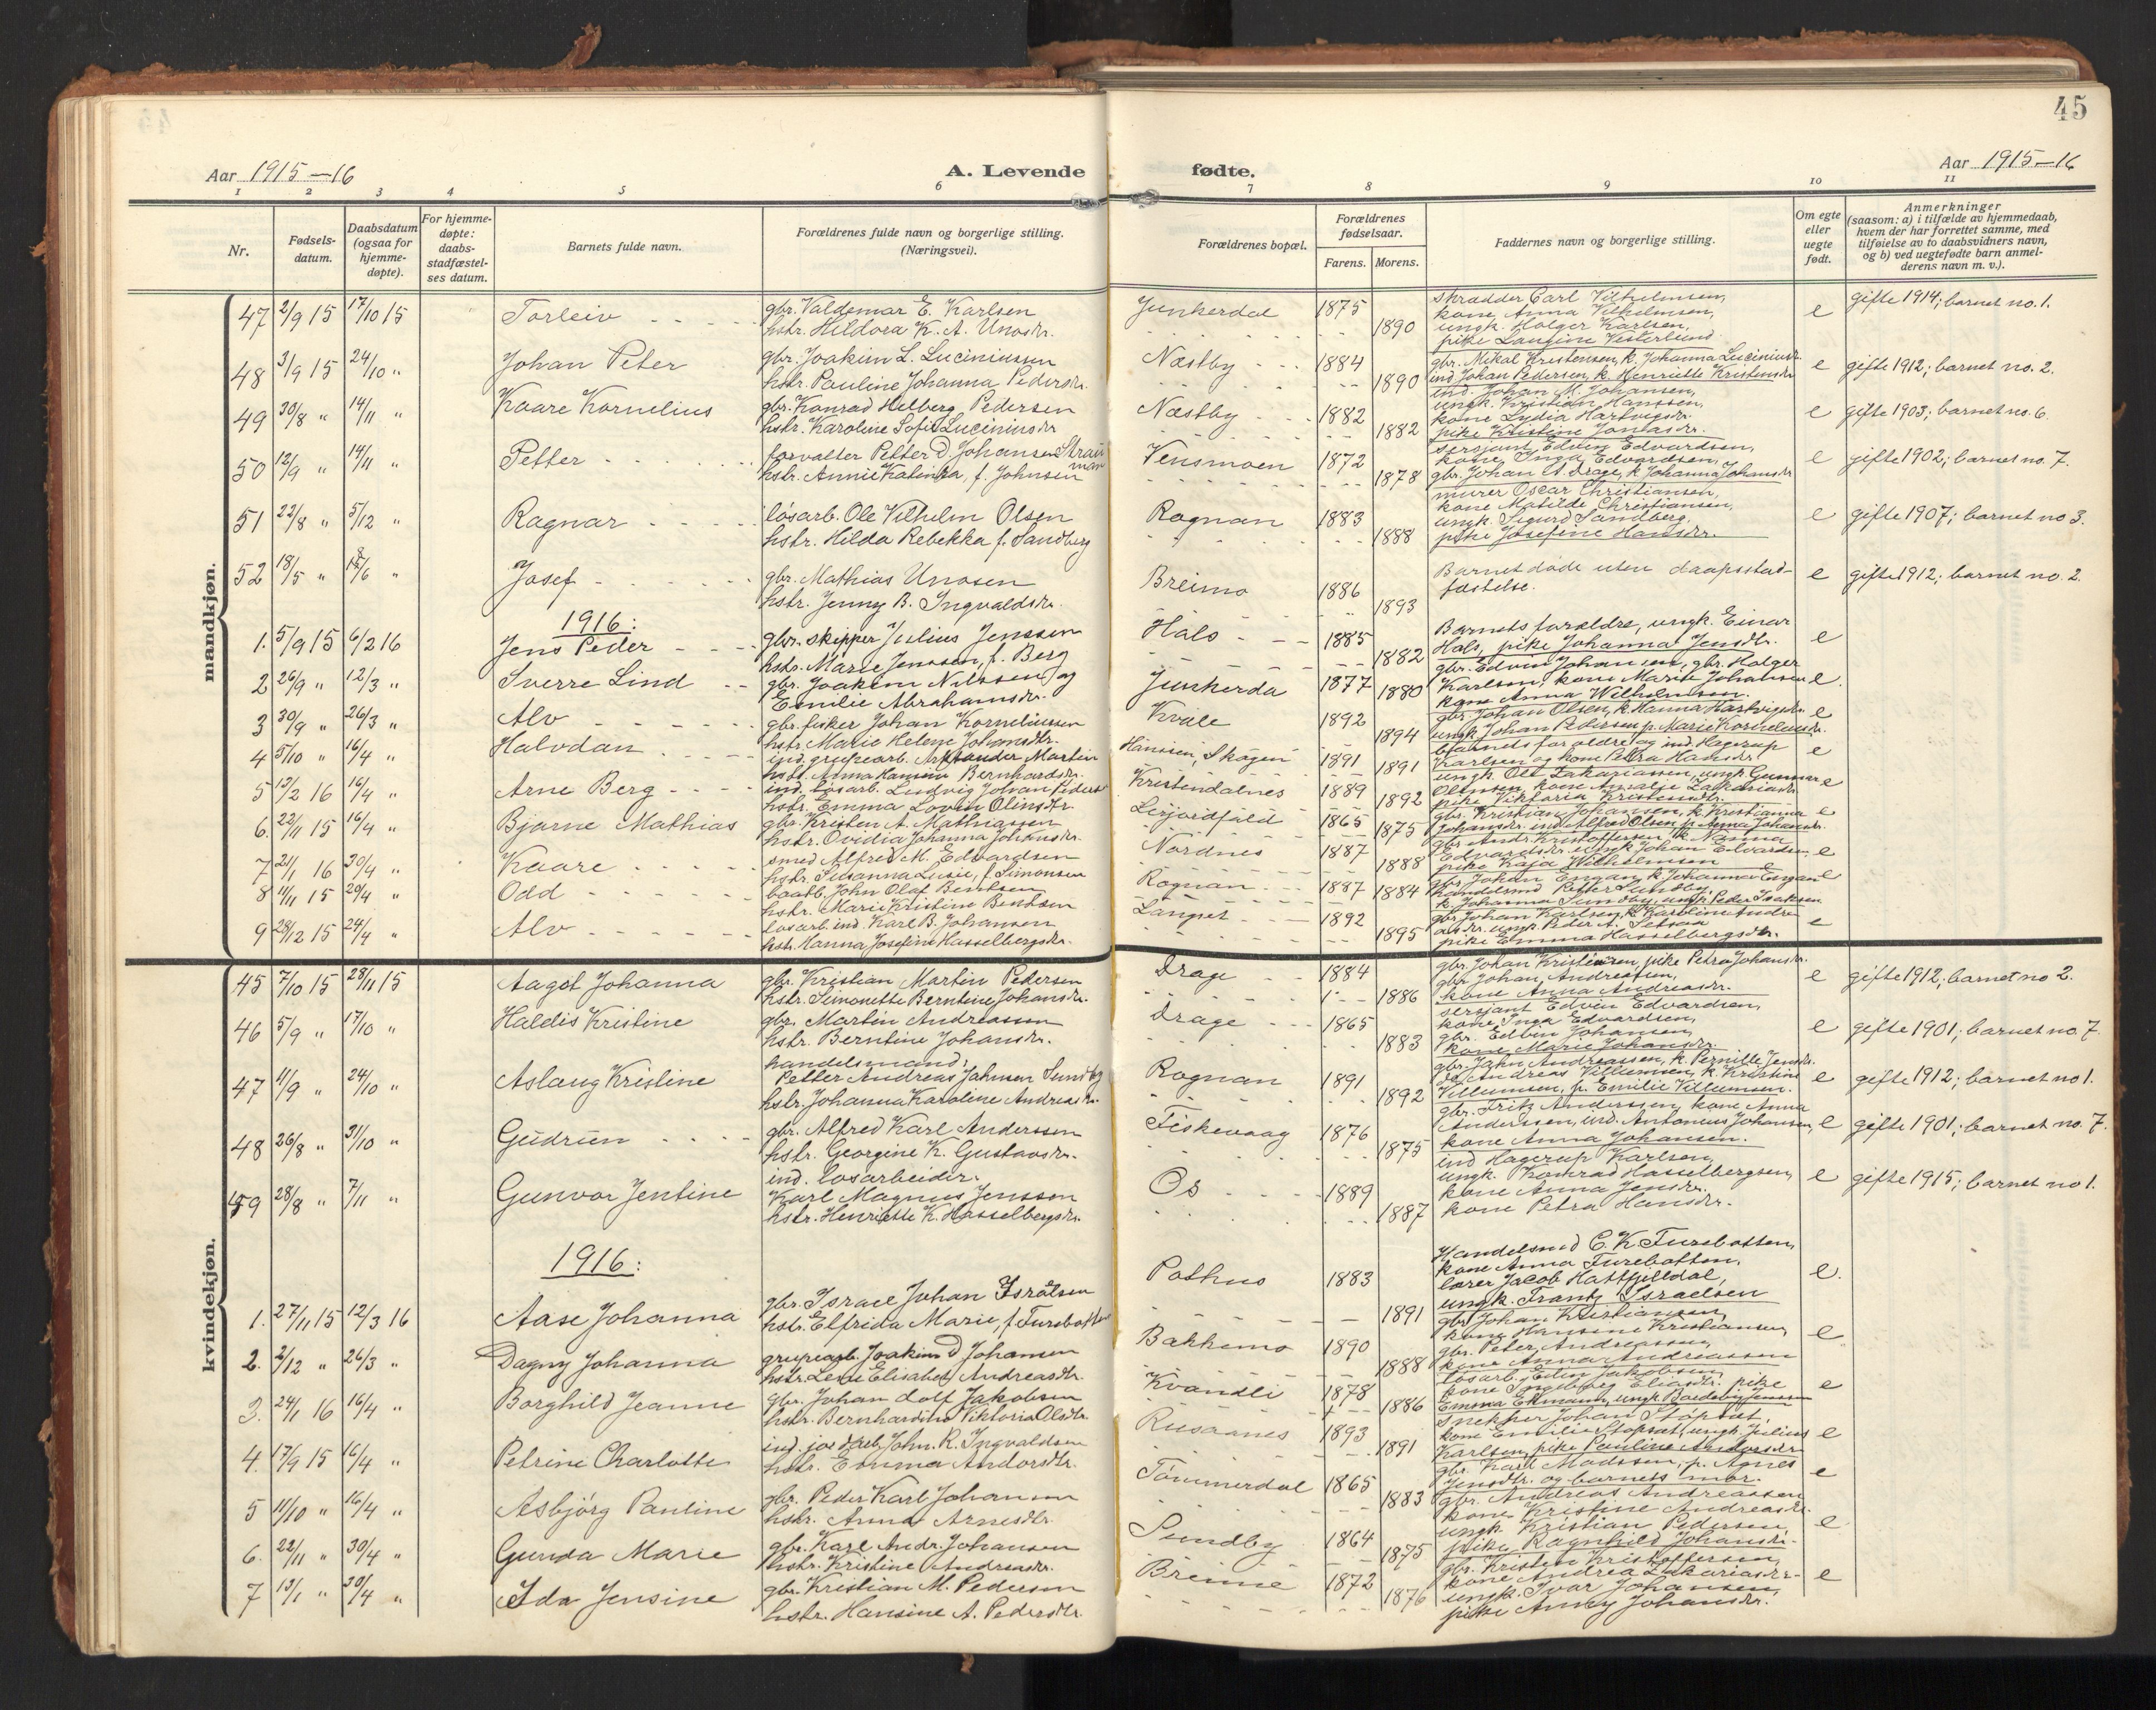 45
Aar 1915–16
A. Levende fødte.
Aar 1915–16
1 2 3 4 5 6 7 8 9 10 11
Nr.
Fødsels-datum.
Daabsdatum (ogsaa for hjemme-døpte).
For hjemme-døpte: daabs-stadfæstel-ses datum.
Barnets fulde navn.
Forældrenes fulde navn og borgerlige stilling. (Næringsvei).
Forældrenes bopæl.
Forældrenes fødselsaar.
Farens. Morens.
Faddernes navn og borgerlige stilling.
Om egte eller uegte født.
Anmerkninger (saasom: a) i tilfælde av hjemmedaab, hvem der har forrettet samme, med tilføielse av to daabsvidners navn, og b) ved uegtefødte barn anmel-derens navn m. v.).
mandkjøn.
47 2/9 15 17/10 15 Torleiv gbr. Valdemar E. Karlsen
hstr. Hildora K. A. Unosdr.
Junkerdal 1875 1890
skrædder Carl Vilhelmsen,
kone Anna Vilhelmsen,
ungk. Holger Karlsen,
pike Laufine Vesterlund
e gifte 1914; barnet no. 1.
48 3/9 15 24/10 " Johan Peter gbr. Joakim L. Luciniussen
hstr. Pauline Johanna Pedersdr.
Næstby 1884 1890
gbr. Mikal Kristensen, k. Johanna Luciniusdr.
ind. Johan Pedersen, k. Henriette Kristensdr.
e gifte 1912; barnet no. 2.
49 30/8 " 14/11 " Kaare Kornelius gbr. Konrad Helberg Pedersen
hstr. Karoline Sofie Luciniusdr.
Næstby 1882 1882
ind. Johan M. Johansen,
ungk. Kristian Hanssen,
kone Lydia Hartvigsdr.
pike Kristine Jonasdr.
e gifte 1903; barnet no. 6.
50 12/9 " 14/11 " Petter forvalter Petter D. Johansen
hstr. Annie Katinka, f. Johnsen
Vensmoen 1872 1878
sersjant Edvin Edvardsen,
kone Inga Edvardsen,
gbr. Johan A. Drage, k. Johanna Johansdr.
e gifte 1902; barnet no. 7.
51 22/8 " 5/12 " Ragnar løsarb. Ole Vilhelm Olsen
hstr. Hilda Rebekka f. Sandberg
Rognan 1883 1888
murer Oscar Christiansen,
kone Matilde Christiansen,
ungk. Sigurd Sandberg,
pike Josefine Hansdr.
e gifte 1907; barnet no 3.
52 18/5 " Josef gbr. Mathias Unosen
hstr. Jenny B. Ingvaldsdr.
Breimo 1886 1893
Barnet døde uten daapsstad-
fæstelse.
e gifte 1912; barnet no. 2.
1916:
1. 5/9 15 6/2 16 Jens Peder gbr. skipper Julius Jenssen
hstr. Marie Jenssen, f. Berg
Hals 1885 1882
Barnets forældre, ungk. Einar
Hals, pike Johanna Jensdtr.
e
2 26/9 " 12/3 " Sverre Lind gbr. Joakim Nilssen og
Emilie Abrahamsdr.
Junkerda 1877 1880
gbr. Edvin Johansen, gbr. Holger
Karlsen, kone Marie Johansen
kone Anna Wilhelmsen.
e.
3 30/9 " 26/3 " Alv gbr. fisker Johan Korneliussen
hstr. Marie Helene Johansdtr.
Kvale 1892 1894
gbr. Johan Olsen, k. Hanna Hartvigsdr.
ungk. Johan Pedersen, p. Marie Korneliusdr.
e
4 5/10 " 16/4 " Halvdan
hstr. Anna Bernhardsdr.
Skogen 1891 1891
barnets forældre og ind. Hagerup
Karlsen og kone Petra Hansdr.
e
5 13/2 16 16/4 " Arne Berg ind. løsarb. Ludvig Johan
hstr. Emma Olinsdtr.
Kristendalnes 1889 1892
ungk. Ole Zakariassen, ungk. Gunnar
Olinsen, kone Amalie Zakariasdr.
pike Viktoria Kristensdtr.
e
6. 22/11 15 16/4 " Bjarne Mathias gbr. Kristen A. Mathiassen
hstr. Ovidia Johanna Johansdr.
1865 1875
gbr. Kristian Johansen, k. Kristianna
Johansdr. ind. Alfred Olsen, p. Anna Johansdr.
e
7 21/1 16 30/4 " Kaare smed Alfred M. Edvardsen
hstr. Susanna Lucie, f. Simonsen
Nordnes 1887 1888
gbr. Andr. Kristoffersen, k. Nanna
Edvardsdr. ungk. Johan Edvardsen,
pike Kaja Wilhelmsen
e
8 11/11 15 20/4 " Odd baatb. John Olaf Bentsen
hstr. Marie Kristine Bentsen
Rognan 1887 1884
gbr. Johan Engan, k. Johanna Engan
handelsmd. Petter Sundby,
k. Johanna Sundby, ungk. Peder Isaksen
e
9 28/12 15 24/4 " Alv løsarb. ind. Karl B. Johansen
hstr. Hanna Josefine Hasselbergsdr.
Langset 1892 1895
gbr. Johan Karlsen, k. Karoline Andre-
asdr. ungk. Peder A. Setsaa
pike Emma Hasselbergsdr.
e
kvindekjøn.
45 7/10 15 28/11 15 Aagot Johanna gbr. Kristian Martin Pedersen
hstr. Simonette Berntine Johansdr.
Drage 1884 1886
gbr. Johan Kristensen, pike Petra Johansdr.
gbr. Johan Andreassen,
kone Anna Andreasdr.
e gifte 1912; barnet no 2.
46 5/9 " 17/10 " Haldis Kristine gbr. Martin Andreassen
hstr. Berntine Johansdr.
Drage 1865 1883
sersjant Edvin Edvardsen,
kone Inga Edvardsen,
gbr. Edvin Johansen,
kone Marie Johansdr.
e gifte 1901; barnet no. 7
47 11/9 " 24/10 " Aslaug Kristine handelsmand,
Petter Andreas Johnsen Sundby
hstr. Johanna Karoline Andreasdr.
Rognan 1891 1892
gbr. John Andreassen, k. Pernille Jensdr.
Andreas Villumsen, k. Kristine
Villumsen, p. Emilie Villumsen.
e gifte 1912; barnet no 1.
48 26/8 " 31/10 " Gudrun gbr. Alfred Karl Anderssen
hstr. Georgine K. Gustavsdr.
Fiskevaag 1876 1875
gbr. Fritz Anderssen, kone Anna
Anderssen, ind. Antonius Johansen,
kone Anna Johansen.
e gifte 1901; barnet no. 7.
49 28/8 " 7/11 " Gunvor Jentine ind. løsarbeider.
Karl Magnus Jenssen
hstr. Henriette K. Hasselbergsdr.
Os 1889 1887
ind Hagerup Karlsen,
ungk. Konrad Hasselbergsen,
kone Anna Jensdr.
kone Petra Hansdr.
e gifte 1915; barnet no 1.
1916:
1. 27/11 15 12/3 16 Aase Johanna gbr. Israel Johan Israelsen
hstr. Elfrida Marie, f. Furebotten
Pothus 1883 1891
Handelsmd C. K. Furebotten,
kone Anna Furebotten,
lærer Jacob Hatfjelldal,
ungk. Frantz Israelsen
e.
2. 2/12 " 26/3 " Dagny Johanna grupearb. Joakim D Johansen
hstr. Lene Elisabet Andreasdtr.
Bakkemo 1890 1888
gbr. Johan Kristiansen,
kone Hansine Kristiansen,
gbr. Peter Andreassen
kone Anna Andreassen
e
3. 24/1 16 16/4 " Borghild Jeanne gbr. Johan Adolf Jakobsen
hstr. Bernhardine Viktoria Olsdtr.
Kvandli 1878 1886
løsarb. Edin Jakobsen
kone Ingeborg Eliasdr. pike
Emma Ekmann, ungk.
e
4. 17/9 15 16/4 " Petrine Charlotte ind. John. R. Ingvaldsen
hstr. Emma Andorsdtr.
Rusaanes 1893 1891
snekker Johan Storset,
kone Emilie Storset, ungk. Julius
Karlsen, pike Pauline Andorsdr.
e
5 11/10 " 16/4 " Asbjørg Pauline gbr. Peder Karl Johansen
hstr. Anna Arnesdtr.
Tømmerdal 1865 1883
gbr. Karl Madssen, p. Agnes
Jensdtr. og barnets mor.
e
6. 22/11 " 30/4 " Gunda Marie gbr. Karl Andr. Johansen
hstr. Kristine Andreasdr.
Sundby 1864 1875
gbr. Andreas Andreassen
kone Kristine Andreasdr.
ungk. Kristian Pedersen,
pike Ragnhild Johansdr.
e
7 13/1 " 30/4 " Ida Jensine gbr. Kristian M. Pedersen
hstr. Hansine A. Pedersdtr.
Brenne 1872 1876
gbr. Kristen Kristoffersen,
kone Andrea Zakariasdr.
ungk. Ivar Johansen,
pike Anny Johansdr.
e